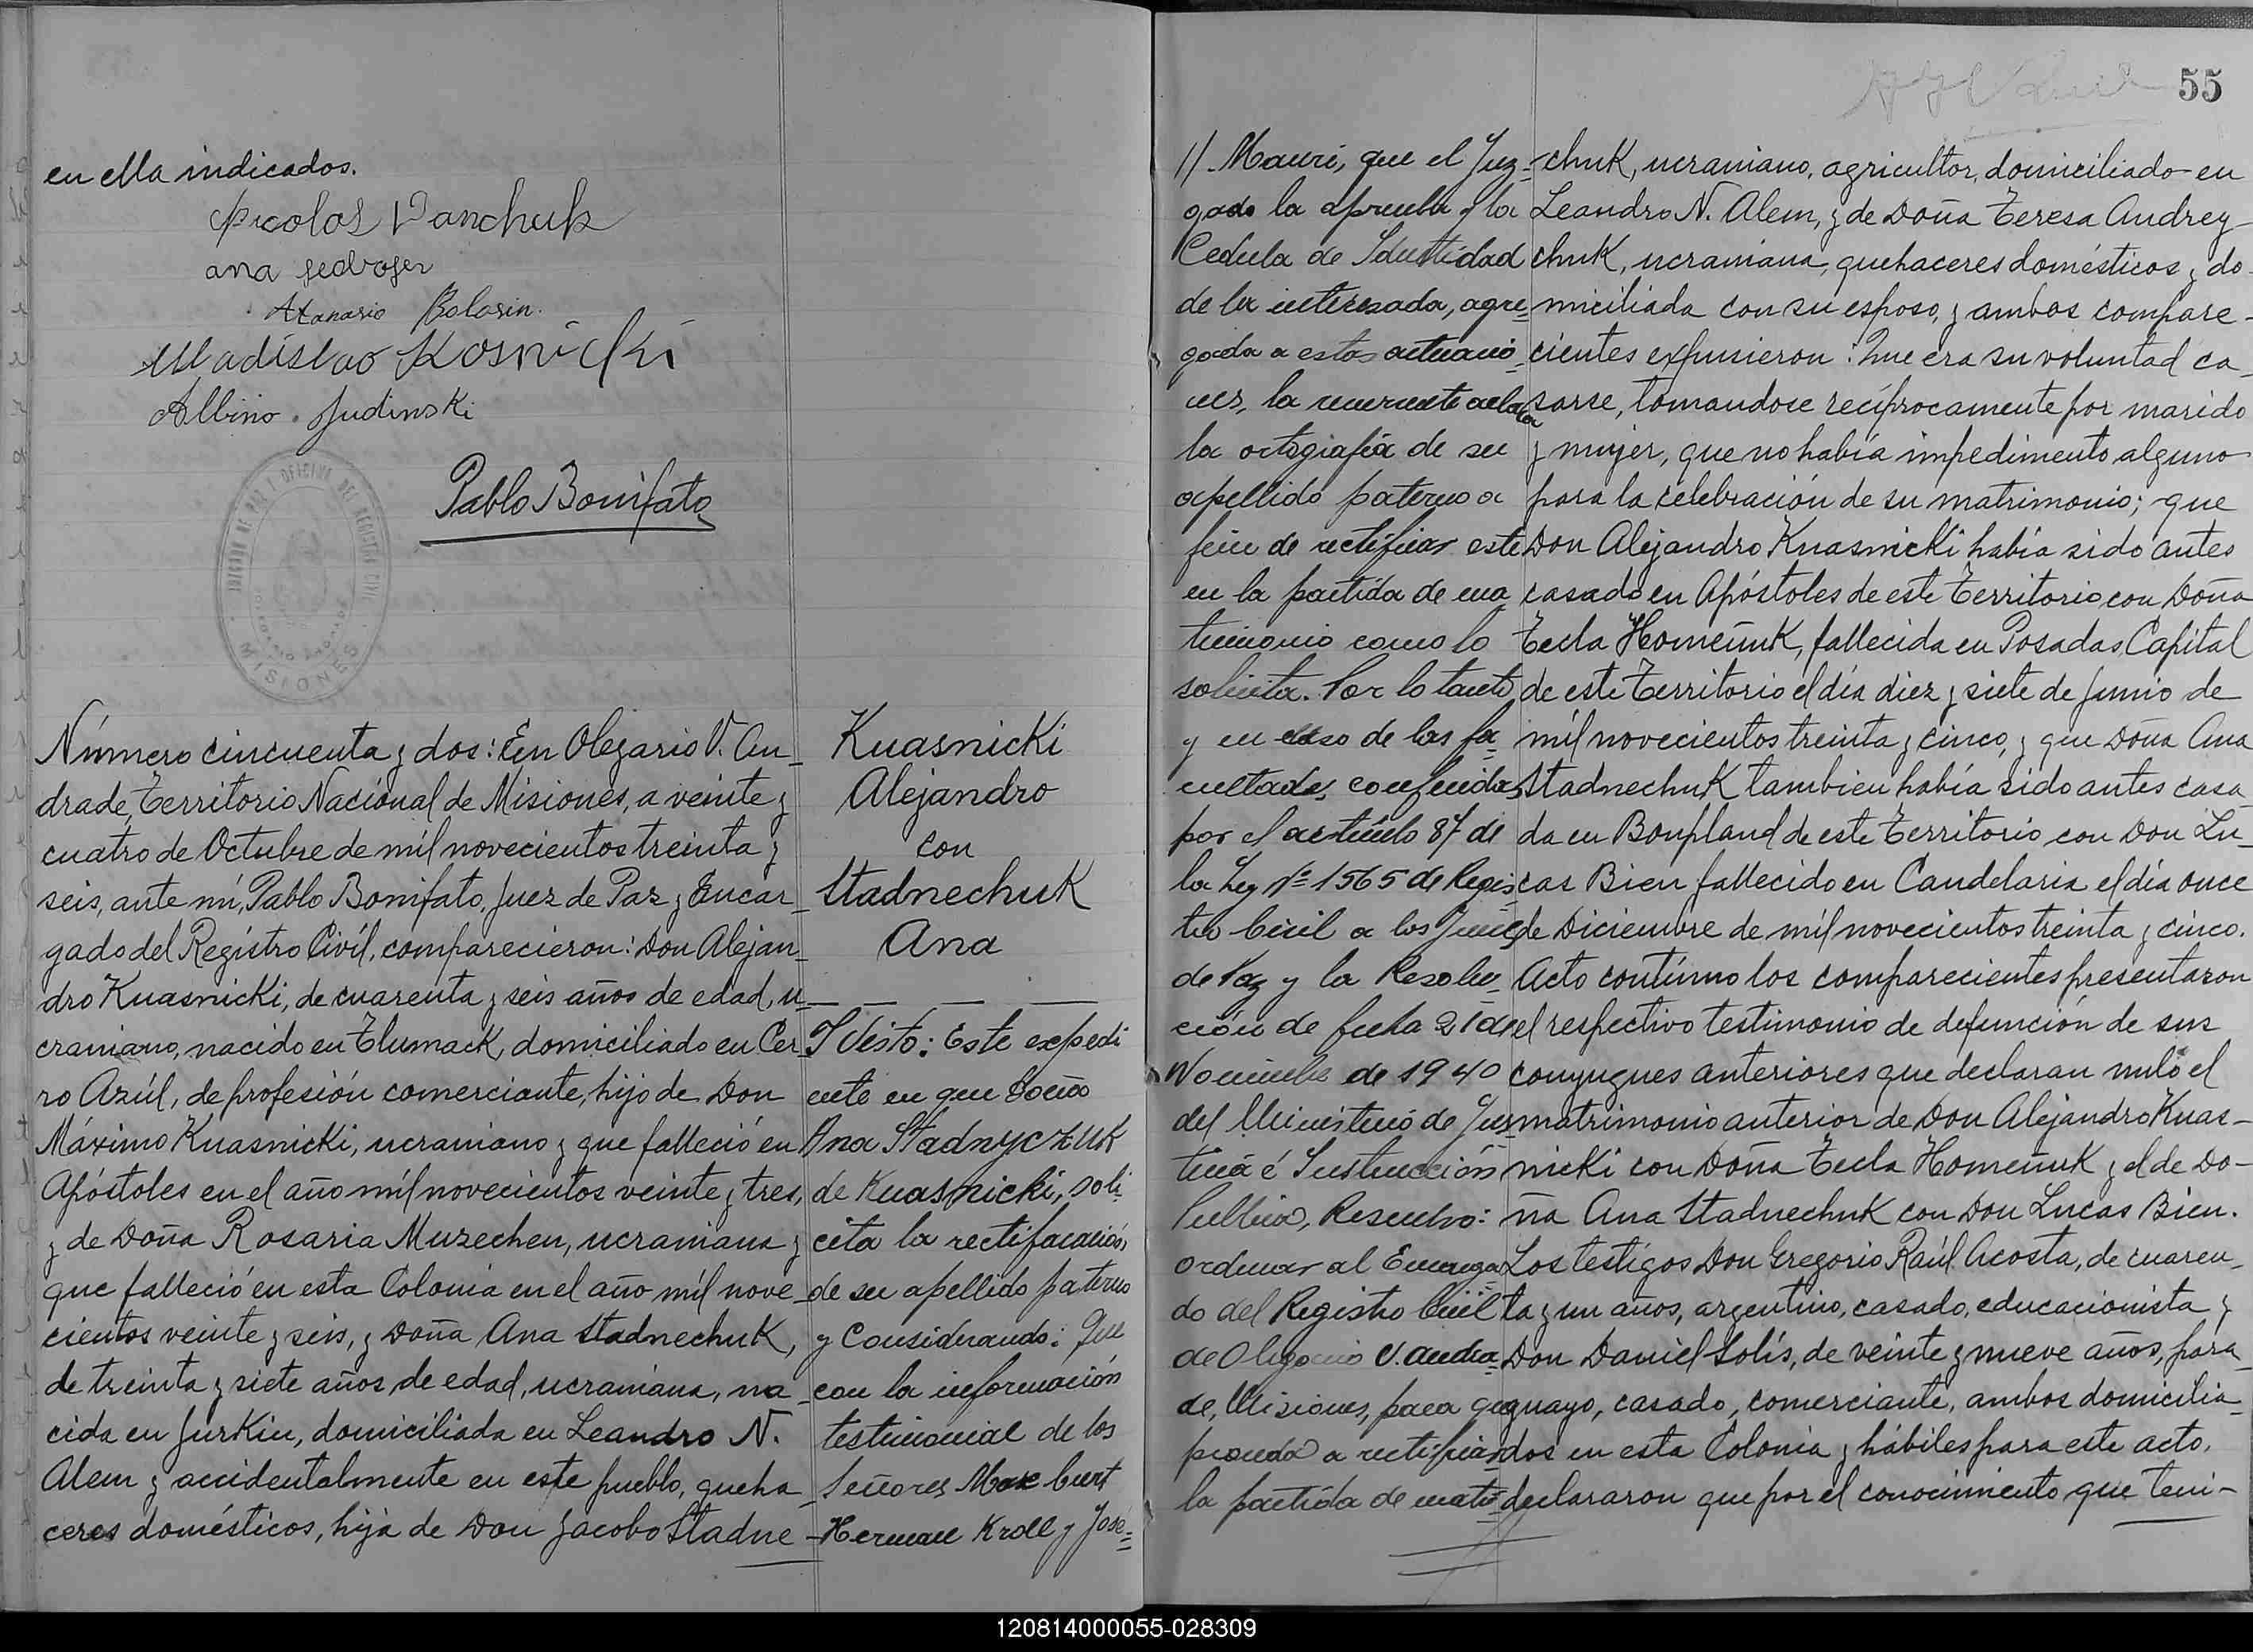 en ella indicados.
Nicolas Vanchuk
ana
Atanasio Bolosin.
Uladislao Kosnicki
Albino Judinski
Pablo Bonifato
JUZGADO DE PAZ Y OFICINA DEL REGISTRO CIVIL
MISIONES
Número cincuenta y dos: En Olegario V. An-
drade, Territorio Nacional de Misiones, a veinte y
cuatro de Octubre de mil novecientos treinta y
seis, ante mí, Pablo Bonifato, Juez de Paz y Encar-
gado del Registro Civil, comparecieron: Don Alejan-
dro Kuasnicki, de cuarenta y seis años de edad, u-
craniano, nacido en Tlumack, domiciliado en Cer-
ro Azúl, de profesión comerciante, hijo de Don
Máximo Kuasnicki, ucraniano y que falleció en
Apóstoles en el año mil novecientos veinte y tres,
y de Doña Rosaria Muzechen, ucraniana y
que falleció en esta Colonia en el año mil nove-
cientos veinte y seis, y Doña Ana Stadnechuk,
de treinta y siete años de edad, ucraniana, na-
cida en Jurkiu, domiciliada en Leandro N.
Alem y accidentalmente en este pueblo, queha-
ceres domésticos, hija de Don Jacobo Stadne-
Kuasnicki
Alejandro
con
Stadnechuk
Ana
Y Visto: Este expedi
ente en que Doña
Ana Stadnyczuk
de Kuasnicki, soli-
cita la rectificación
de su apellido paterno
y Considerando: Que
con la información
testimonial de los
Señores Max Curt
Herman Kroll y José
55
// Mauri, que el Juz-
gado la aprueba y la
Cedula de Identidad
de la interesada, agre-
gada a estas actuacio-
nes, la recurrente aclara
la ortografía de su
apellido paterno a
fin de rectificar este
en la partida de ma
trimonio como lo
solicita. Por lo tanto
y en uso de las fa-
cultades conferidas
por el artículo 87 de
la Ley Nº 1565 de Regis
tro Civil a los Jueces
de Paz y la Resolu-
ción de fecha 21 de
Noviembre de 1940
del Ministerio de Jus-
ticia é Instrucción
Publica, Resuelvo:
ordenar al Encarga
do del Registro Civil
de Olegario V. Andra-
de, Misiones, para que
proceda a rectificar
la partida de matri-
chuk, ucraniano, agricultor, domiciliado en
Leandro N. Alem, y de Doña Teresa Andrey-
chuk, ucraniana, quehaceres domésticos y do-
miciliada con su esposo, y ambos compare-
cientes expusieron: Que era su voluntad ca-
sarse, tomandose recíprocamente por marido
y mujer, que no había impedimento alguno
para la celebración de su matrimonio; que
Don Alejandro Kuasnicki había sido antes
casado en Apóstoles de este Territorio con Doña
Tecla Homeñuk, fallecida en Posadas, Capital
de este Territorio el día diez y siete de Junio de
mil novecientos treinta y cinco, y que Doña Ana
Stadnechuk tambien había sido antes casa-
da en Bonpland de este Territorio con Don Lu-
cas Bien fallecido en Candelaria el día once
de Diciembre de mil novecientos treinta y cinco.
Acto contínuo los comparecientes presentaron
el respectivo testimonio de defunción de sus
conyugues anteriores que declaran nulo el
matrimonio anterior de Don Alejandro Kuas-
nicki con Doña Tecla Homeñuk y el de Do-
ña Ana Stadnechuk con Don Lucas Bien.
Los testigos Don Gregorio Raúl Acosta, de cuaren-
ta y un años, argentino, casado, educacionista y
Don Daniel Solís, de veinte y nueve años, para-
guayo, casado, comerciante, ambos domicilia-
dos en esta Colonia y hábiles para este acto,
declararon que por el conocimiento que teni-
120814000055-028309